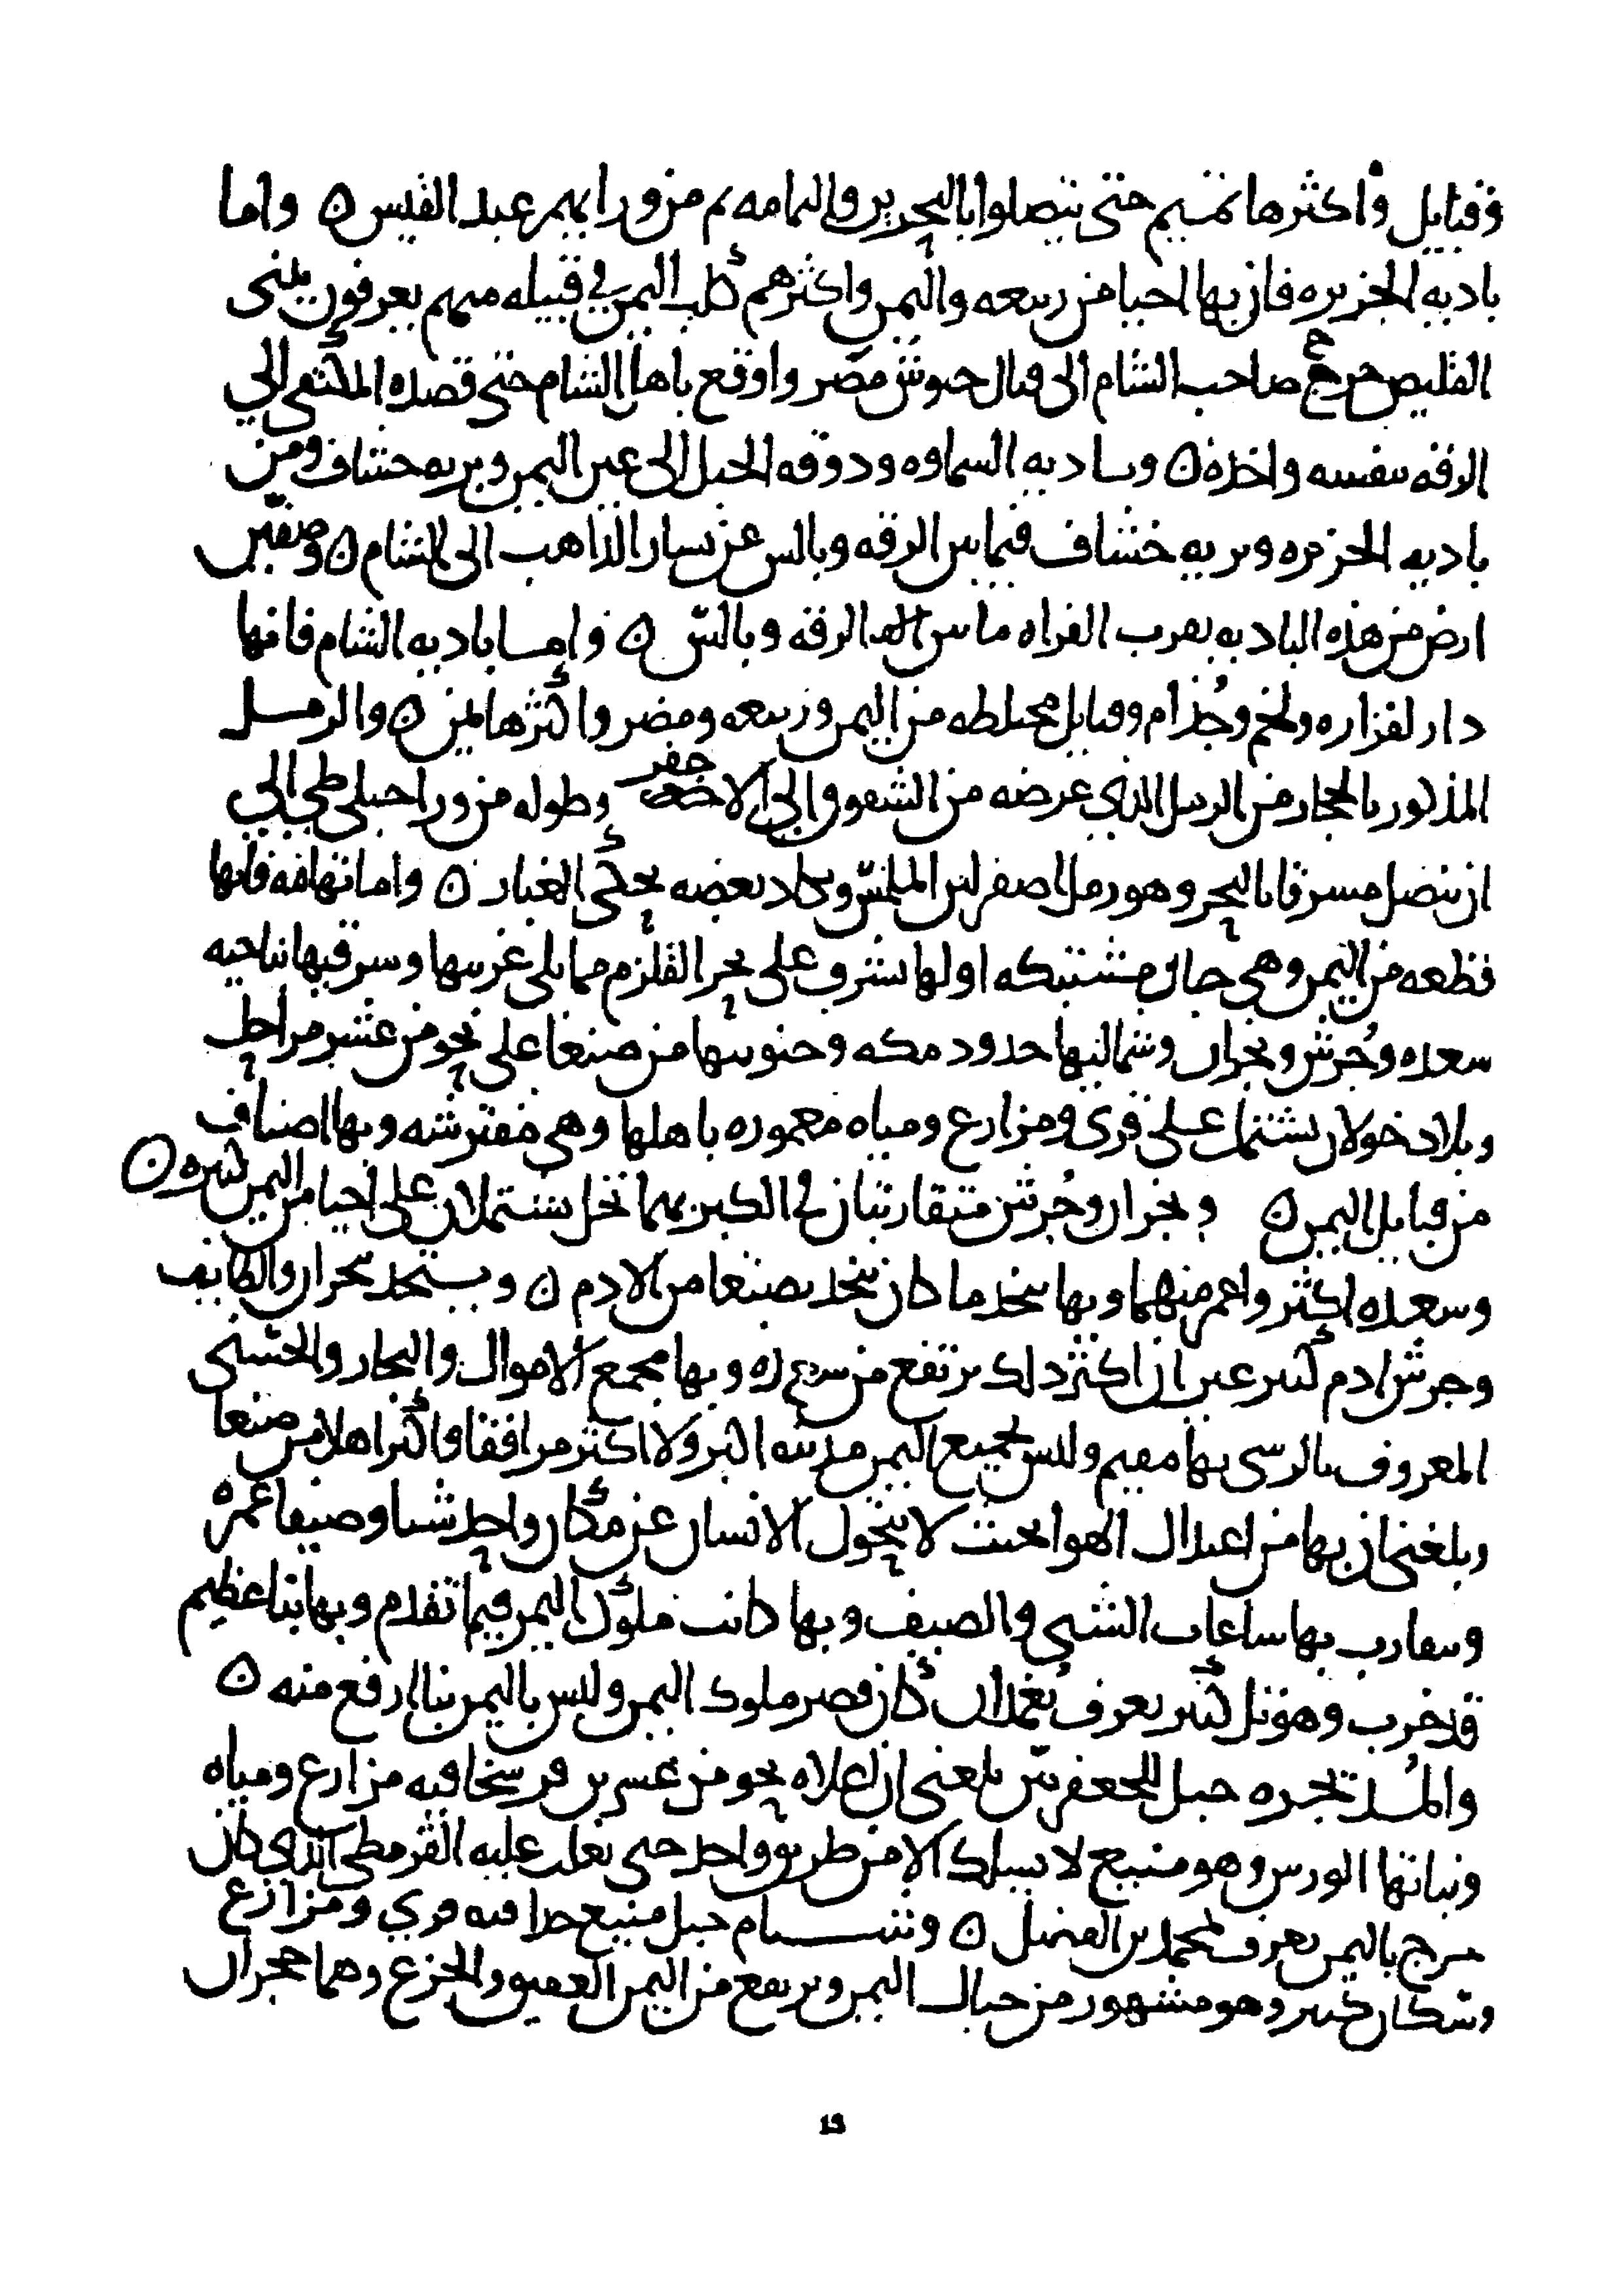 وقبايل واكثرها تميم حتى يتصلوا بالبحرين واليمامه ثم من ورايهم عبد القيس ن واما
باديه الجزيره فان بها احيا من ربيعه واليمن واكثرهم كلب اليمن في قبيله منهم يعرفون ببنى
القليص خرج صاحب الشام الى قتال جيوش مصر واوقع باهل الشام حتى قصده المكتفى الي
الرقه بنفسه واخذه ن وباديه السماوه ودومه الجبل الى عين اليمن وبريه خساف ومن
باديه الجزيره وبريه خشاف فيما بين الرقه وبالس عن يسار الذاهب الى الشام ن وصفين
ارض من هذه الباديه بقرب الفراه ما بين الرقه وبالس ن واما باديه الشام فانها
دار لفزاره ولخم وجُذام وقبايل مختلطه من اليمن وربيعه ومضر واكثرها يمن ن والرمل
المذكور بالحجاز من الرمل الذي عرضه من الشقوق الى الاجفر وطوله من ورا جبلى طي الي
ان يتصل مشرقا بالبحر وهو رمل اصفر لين الملمس ويكاد بعضه يحكى الغبار ن واما تهامه فانها
قطعه من اليمن وهى جبال مشتبكه اولها يشرف على بحر القلزم مما يلى غربيها وشرقيها بناحيه
سعده وجُرش ونجران وشماليها حدود مكه وجنوبيها من صنعا على نحو من عشر مراحل
وبلاد خولان يشتمل على قرى ومزارع ومياه معموره باهلها وهى مفترشه وبها اصناف
من قبايل اليمن ن ونجران وجُرش متقاربتان في الكبر بهما نخل يشتملان على احيا من اليمن كثيره ن
وسعده اكثر واعمر منهما وبها يتخذ ما كان يتخذ بصنعا من الادم ن ويتخذ بنجران والطايف
وجرش ادم كثير غير ان اكثر ذلك يرتفع من سعده وبها مجمع الاموال والتجار والحسنى
المعروف بالرسى بها مقيم وليس بجميع اليمن مدينه اكبر ولا اكثر مرافقا واكثر اهلا من صنعا
وبلغنى ان بها من اعتدال الهوا بحيث لا يتحول الانسان عن مكان واحد شتا وصيفا عمره
وتتقارب بها ساعات الشتى والصيف وبها كانت ملوك اليمن فيما تقدم وبها بنا عظيم
قد خرب وهو تل كبير يعرف بُغمدان كان قصر ملوك اليمن وليس باليمن بنا ارفع منه ن
والمُذيخره جبل للجعفريين بلغنى ان اعلاه نحو من عشرين فرسخا فيه مزارع ومياه
ونباتها الورس وهو منيع لا يسلك الا من طريق واحد حتى تغلب عليه القرمطى الذي كان
خرج باليمن يعرف بمحمد بن الفضل ن وشبام جبل منيع جدا فيه قري ومزارع
وسكان كثير وهو مشهور من جبال اليمن ويرتفع من اليمن العقيق والجزع وهما حجران
19